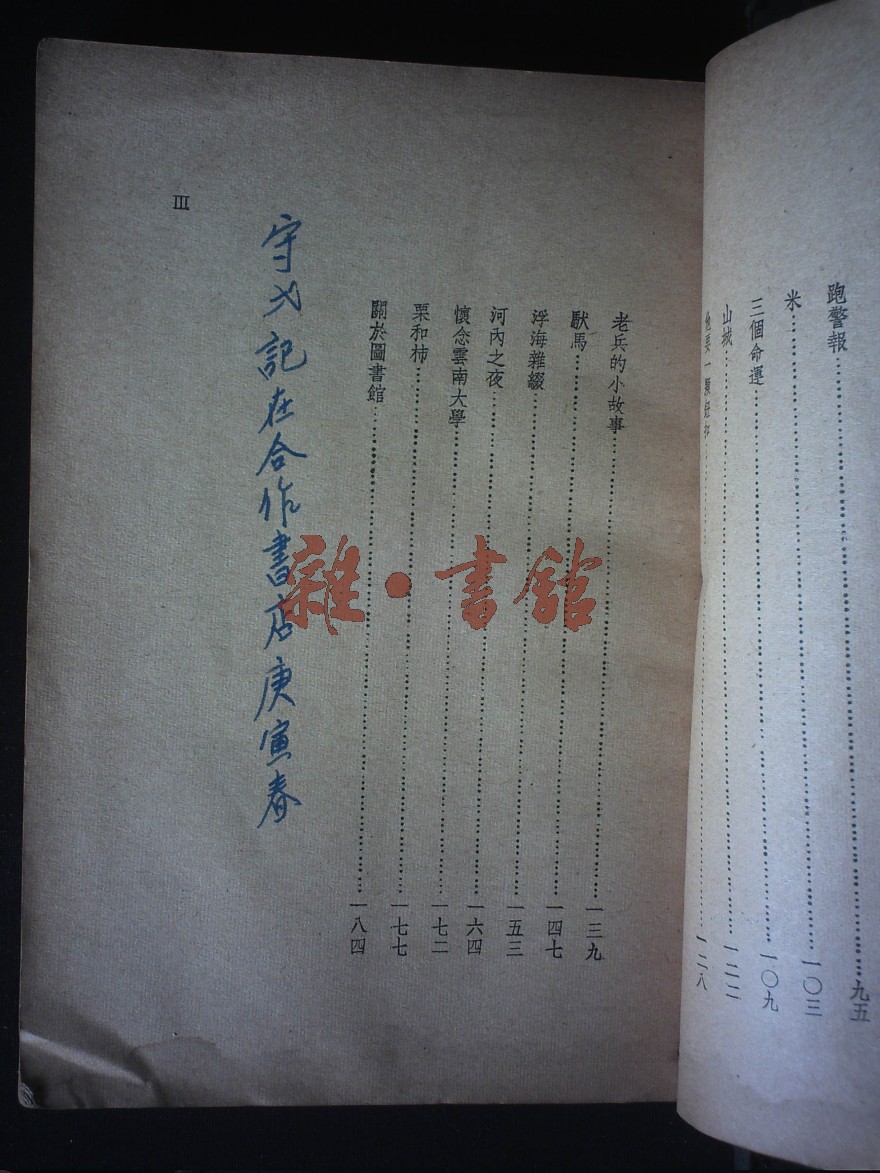 跑警報……九五
米……一〇三
三個命運……一〇九
山城……一二二
他要一顆紐扣……一二八
老兵的小故事……一三九
獃馬……一四七
浮海雜綴……一五三
河內之夜……一六四
懷念雲南大學……一七二
栗和柿……一七七
關於圖書館……一八四
守 記在合作書店庚寅春
III
雜·書館